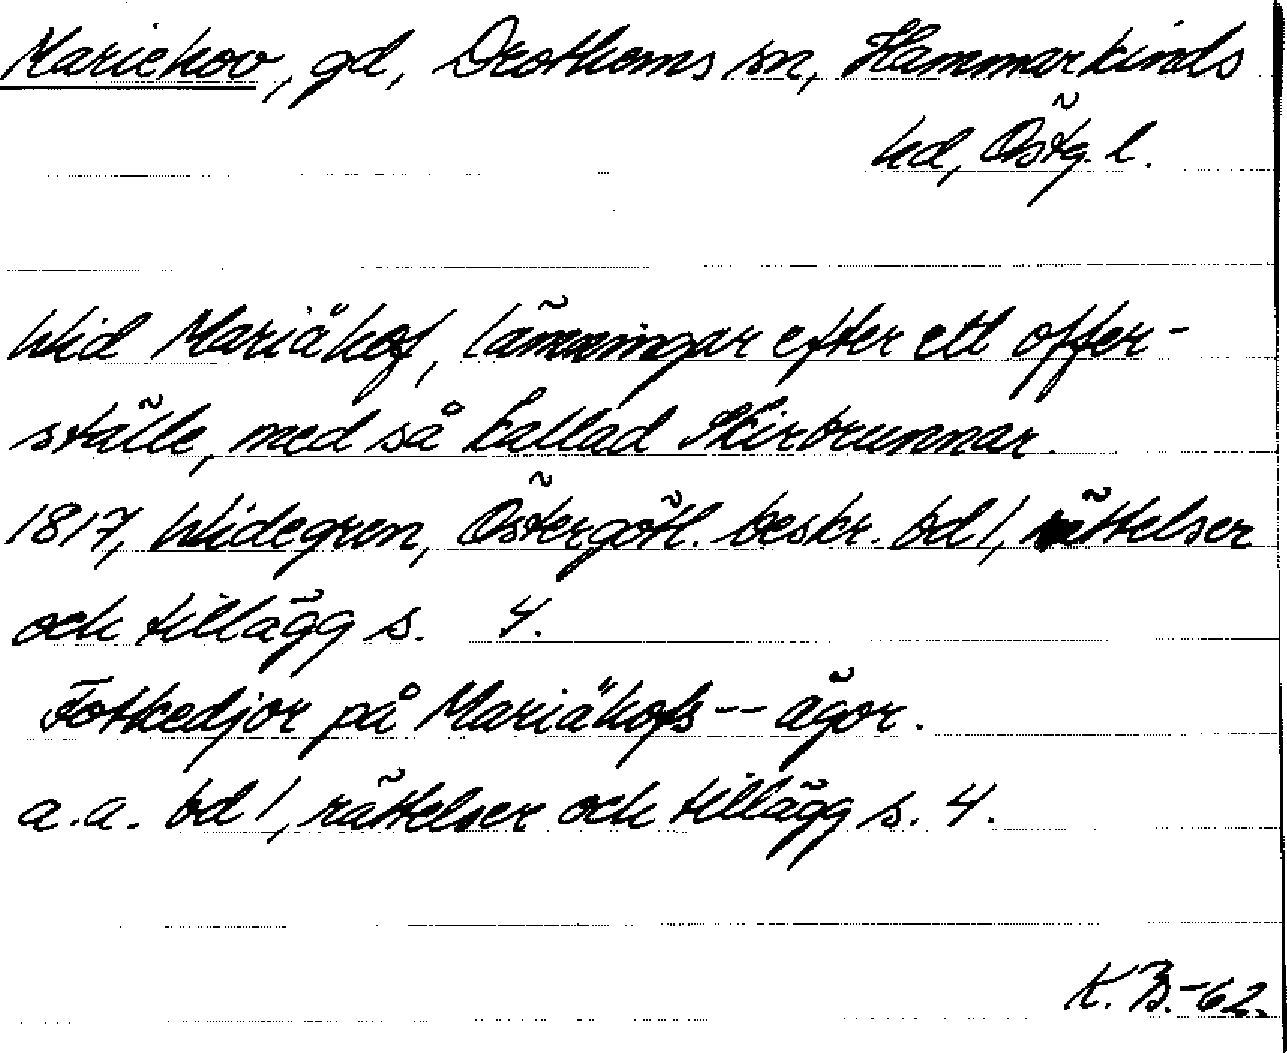 Mariehov, gd, Drothems sn, Hammarkinds
hd, Östg. l.
Wid Mariähof, lämningar efter ett offer-
ställe, med så kallad Skirbrunnar.
1817, Widegren, Östergötl. beskr. bd 1, rättelser
och tillägg s. 4.
Fotkedjor på Mariähofs -- ägor.
a.a. bd 1, rättelser och tillägg s. 4.
K. B. -62.